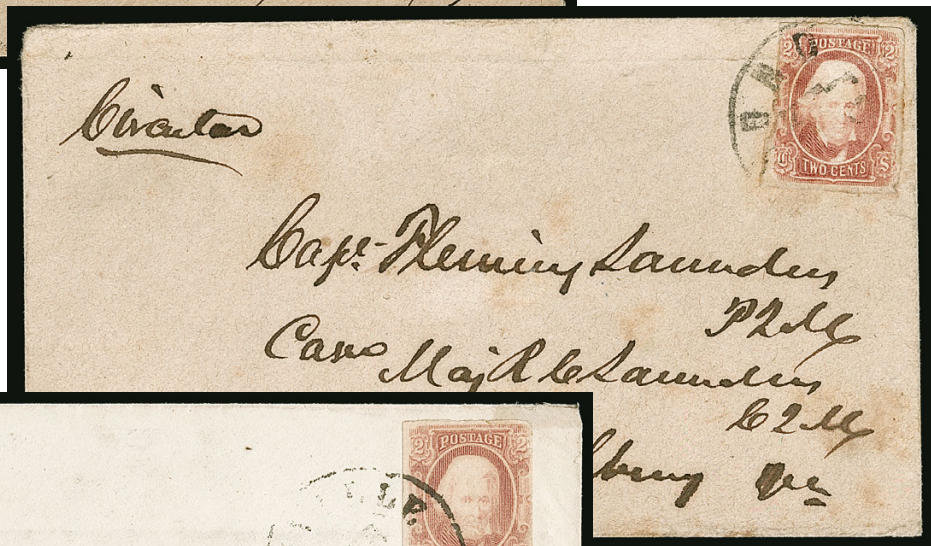 Circular
2 POSTAGE 2
U S
TWO CENTS
BURG
Capt. Fleming Saunders
P2M
Care Maj R C Saunders
C2M
lburg
2 POSTAGE 2
LLE.